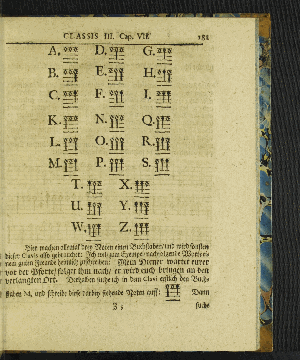 CLASSIS III. Cap. VII. 181
A. D. G.
B. E. H.
C. F. I.
K. N. Q.
L. O. R.
M. P. S.
T. X.
U. Y.
W. Z.
Hier machen allemal drey Noten einen Buchstaben, und wird sonsten
dieser Clavis also gebraucht: Ich will zum Exempel nachfolgende Worte
meinem guten Freunde heimlich zuschreiben: Mein Diener wartet euer
vor der Pforte, folget ihm nach, er wird euch bringen an den
verlangten Ort. Derhalben suche ich in dem Clavi erstlich den Buch-
staben M, und schreibe diese darbey stehende Noten auff: Dann
Z 3 suche